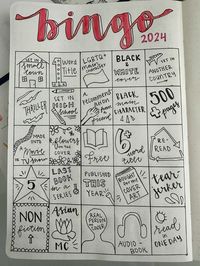 bingo
2024
SET IN
Small
town
1
Word
Title
LGBTQ+
main
character
BLACK
& WHITE
cover
SET IN
Another
COUNTRY
THRILLER
SET IN
HIGH
School
a
recommendation
from
Black
main
CHARACTER
500
pages
MADE
INTO
Movie
TV show
flowers
on the
cover
Free
6+
word
title
RE-
READ
5
LAST
BOOK
IN a
SERIES
PUBLISHED
THIS
YEAR
BOUGHT
for the
COVER
ART
tear
jerker
NON
fiction
Asian
MC
REAL
PERSON
COVER
AUDIO-
BOOK
read in
ONE DAY